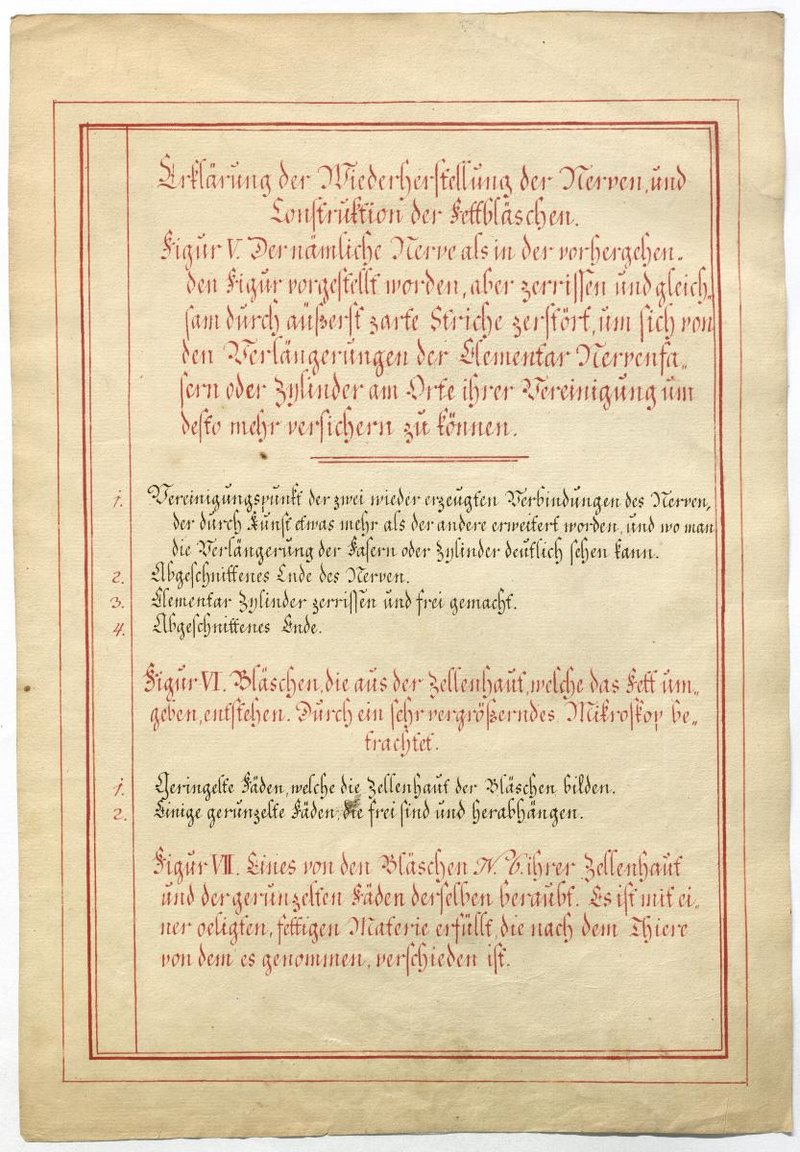 Erklärung der Wiederherstellung der Nerven, und
Construktion der Fettbläschen.
Figur V. Der nämliche Nerve als in der vorhergehen„
den Figur vorgestellt worden, aber zerrissen und gleich„
sam durch äußerst zarte Striche zerstört, um sich von
den Verlängerungen der Elementar Nervenfa„
sern oder Zylinder am Orte ihrer Vereinigung um
desto mehr versichern zu können.
1. Vereinigungspunkt der zwei wieder erzeugten Verbindungen des Nerven,
der durch Kunst etwas mehr als der andere erweitert worden, und wo man
die Verlängerung der Fasern oder Zylinder deutlich sehen kann.
2. Abgeschnittenes Ende des Nerven.
3. Elementar Zylinder zerrissen und frei gemacht.
4. Abgeschnittenes Ende.
Figur VI. Bläschen, die aus der Zellenhaut, welche das Fett um„
geben, entstehen. Durch ein sehr vergrößerndes Mikroskop be„
trachtet.
1. Geringelte Fäden, welche die Zellenhaut der Bläschen bilden.
2. Einige gerunzelte Fäden, die frei sind und herabhängen.
Figur VII. Eines von den Bläschen N. 6. ihrer Zellenhaut
und der gerunzelten Fäden derselben beraubt. Es ist mit ei„
ner oeligten, fettigen Materie erfüllt, die nach dem Thiere
von dem es genommen, verschieden ist.